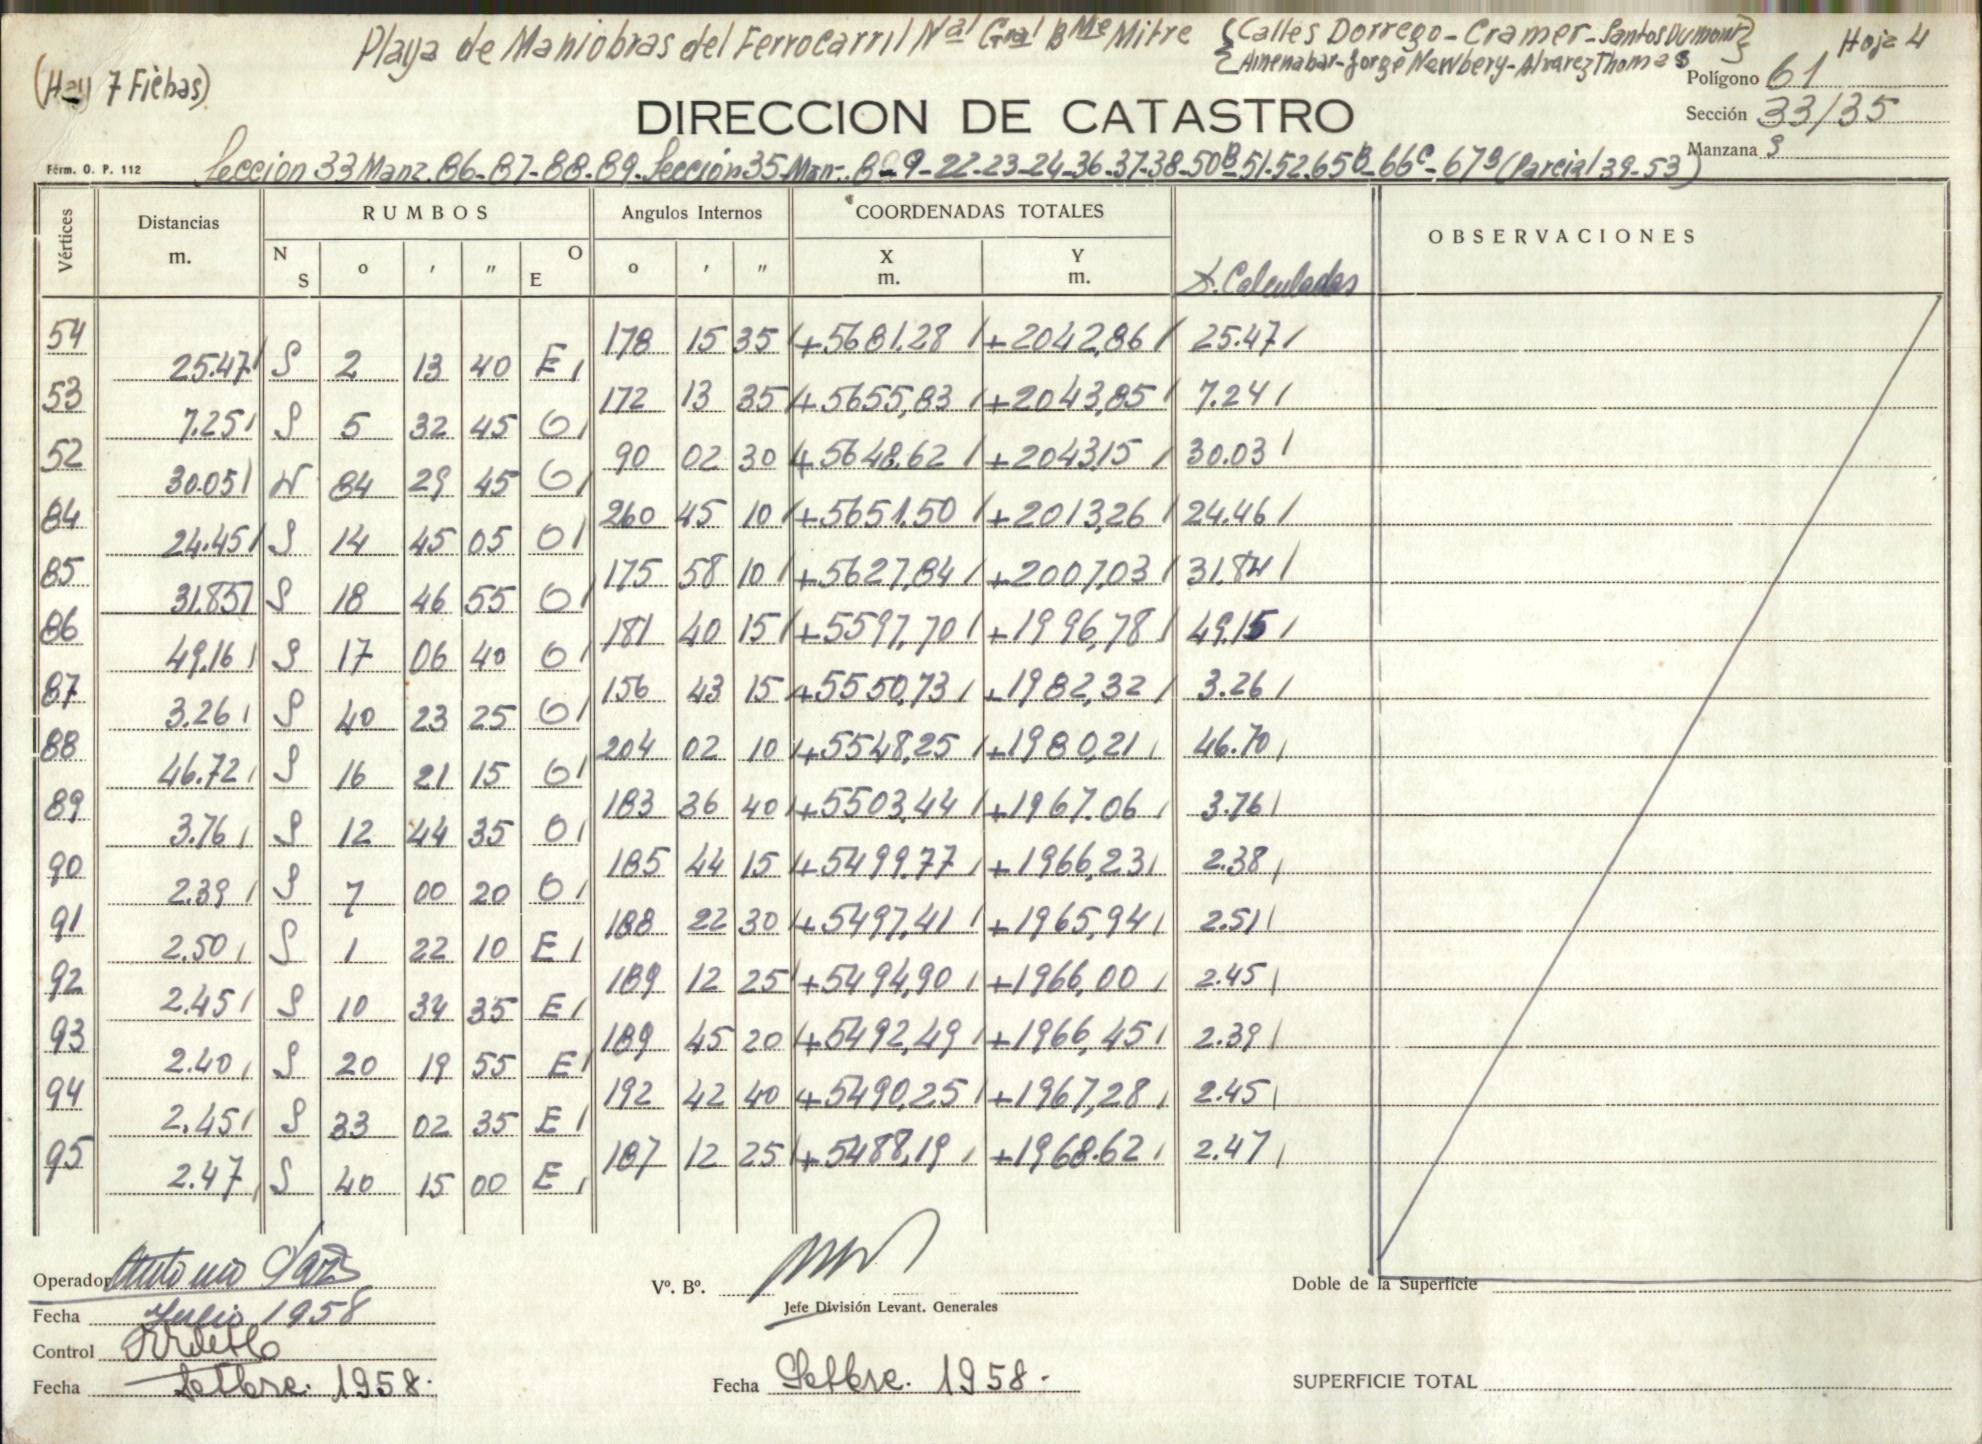 Playa de Maniobras del Ferrocarril Nal Gral Bme Mitre {Calles Dorrego-Cramer-Santos Dumont} Hoja 4
{Amenabar-Jorge Newbery-Alvarez Thomas
(Hay 7 Fichas)
Polígono 61
DIRECCION DE CATASTRO
Sección 33/35
Manzana S
Férm. O. P. 112
Sección 33 Manz. 86-87-88-89-Sección 35 Man-8-9-22-23-24-36-37-38-50B-51-52-65B-66C-67B (Parcial 39-53)
Vértices Distancias m. RUMBOS Angulos Internos COORDENADAS TOTALES D. Calculadas OBSERVACIONES
N S o ' " O E o ' " X m. Y m.
54 178 15 35 +5681.28 +2042,86 25.47
25.47 S 2 13 40 E
53 172 13 35 +5655,83 +2043,85 7.24
7.25 S 5 32 45 O
52 90 02 30 +5648.62 +2043,15 30.03
30.05 N 84 29 45 O
84 260 45 10 +5651.50 +2013,26 24.46
24.45 S 14 45 05 O
85 175 58 10 +5627,84 +2007,03 31.84
31.85 S 18 46 55 O
86 181 40 15 +5597,70 +1996,78 49.15
49.16 S 17 06 40 O
87 156 43 15 +5550,73 +1982,32 3.26
3.26 S 40 23 25 O
88 204 02 10 +5548,25 +1980,21 46.70
46.72 S 16 21 15 O
89 183 36 40 +5503,44 +1967.06 3.76
3.76 S 12 44 35 O
90 185 44 15 +5499.77 +1966,23 2.38
2.39 S 7 00 20 O
91 188 22 30 +5497,41 +1965,94 2.51
2.50 S 1 22 10 E
92 189 12 25 +5494,90 +1966,00 2.45
2.45 S 10 34 35 E
93 189 45 20 +5492,49 +1966,45 2.39
2.40 S 20 19 55 E
94 192 42 40 +5490,25 +1967,28 2.45
2.45 S 33 02 35 E
95 187 12 25 +5488,19 +1968.62 2.47
2.47 S 40 15 00 E
Operador Antonio
Vº. Bº.
Doble de la Superficie
Jefe División Levant. Generales
Fecha Julio 1958
Control
Fecha Setbre. 1958.
Fecha Setbre. 1958.
SUPERFICIE TOTAL